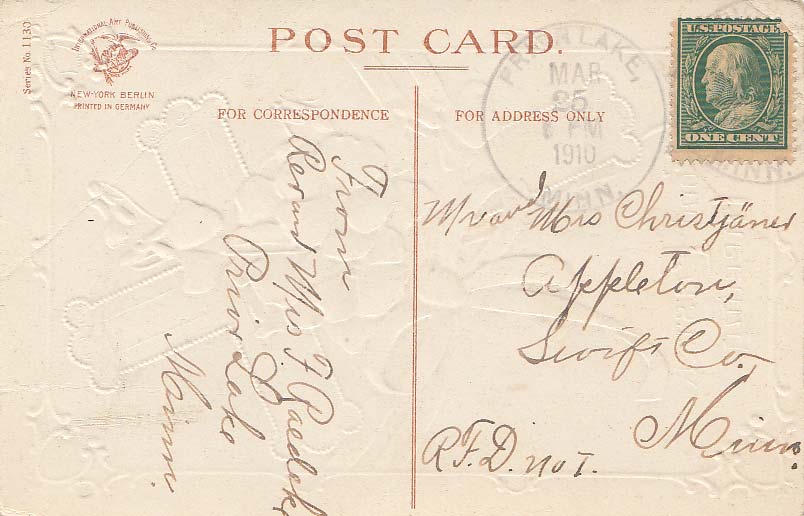 Series No. 1130
INTERNATIONAL ART PUBLISHING Co.
NEW-YORK BERLIN
PRINTED IN GERMANY
POST CARD.
FOR CORRESPONDENCE
FOR ADDRESS ONLY
PRIOR LAKE,
MAR
25
6 PM
1910
MINN.
U.S. POSTAGE
ONE CENT
MINN.
From
Rev and Mrs F.
Prior Lake
Minn.
Mr and Mrs Christjäner
Appleton,
Swift Co.
Minn.
R.F.D. no 1.